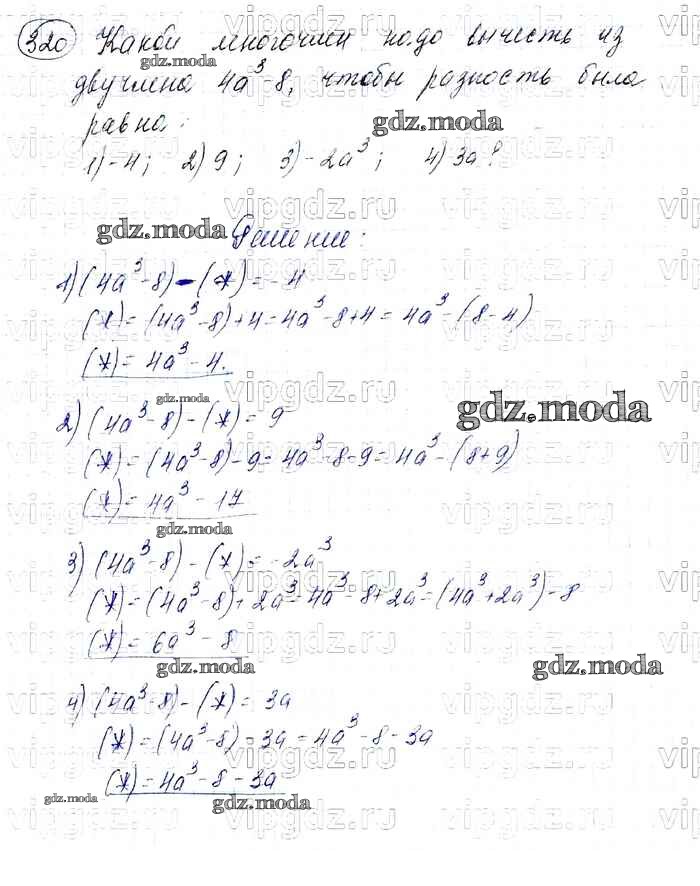 320 Какой многочлен надо вычесть из
двучлена 4a³-8, чтобы разность была
равна:
1) -4; 2) 9; 3) -2a³; 4) 3a?
Решение:
1) (4a³-8) - (*) = -4
(*) = (4a³-8)+4 = 4a³-8+4 = 4a³-(8-4)
(*) = 4a³-4.
2) (4a³-8) - (*) = 9
(*) = (4a³-8)-9 = 4a³-8-9 = 4a³-(8+9)
(*) = 4a³-17
3) (4a³-8) - (*) = -2a³
(*) = (4a³-8)+2a³ = 4a³-8+2a³ = (4a³+2a³)-8
(*) = 6a³-8
4) (4a³-8) - (*) = 3a
(*) = (4a³-8) = 3a = 4a³-8-3a
(*) = 4a³-8-3a
gdz.moda
vipgdz.ru